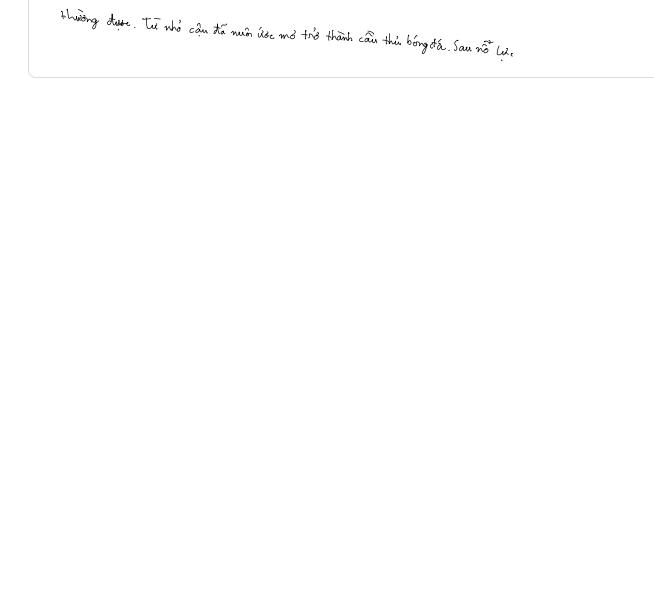 thường được. Từ nhỏ cậu đã nuôi ước mơ trở thành cầu thủ bóng đá. Sau nỗ lực